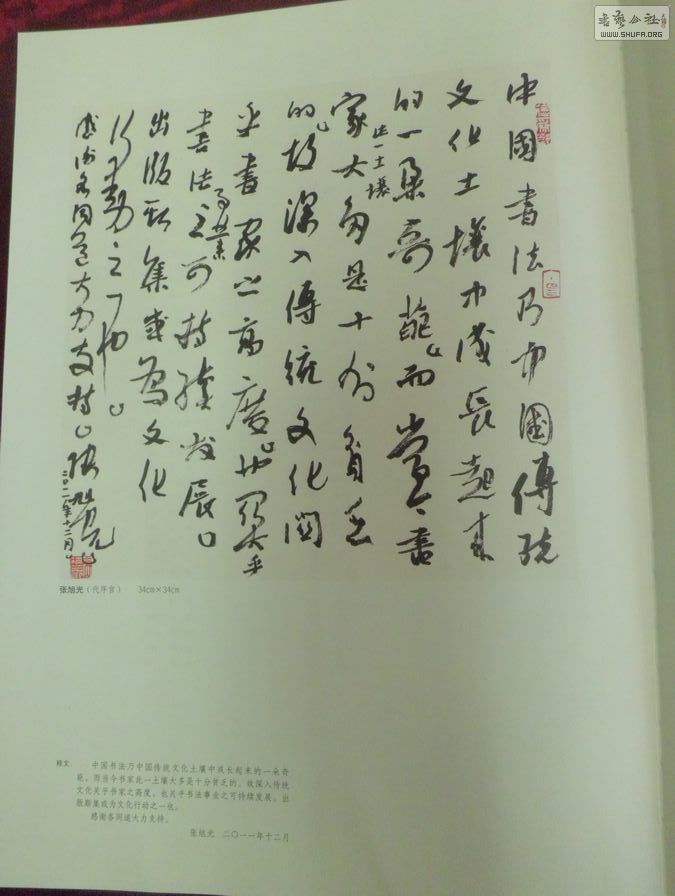 书艺公社
WWW.SHUFA.ORG
中國書法乃中國傳統
文化土壤中成長起来
的一朵奇葩。而當今書
家此一土壤大多是十分貧乏
的。故深入傳統文化関
乎書家之高度。也関乎
書法事業之可持續发展。
出版斯集或為文化
行動之一也。
感谢各同道大力支持。张旭光
二〇一一年十二月。
张旭光（代序言） 34cm×34cm
释文：
中国书法乃中国传统文化土壤中成长起来的一朵奇
葩。而当今书家此一土壤大多是十分贫乏的。故深入传统
文化关乎书家之高度，也关乎书法事业之可持续发展。出
版斯集或为文化行动之一也。
感谢各同道大力支持。
张旭光 二〇一一年十二月